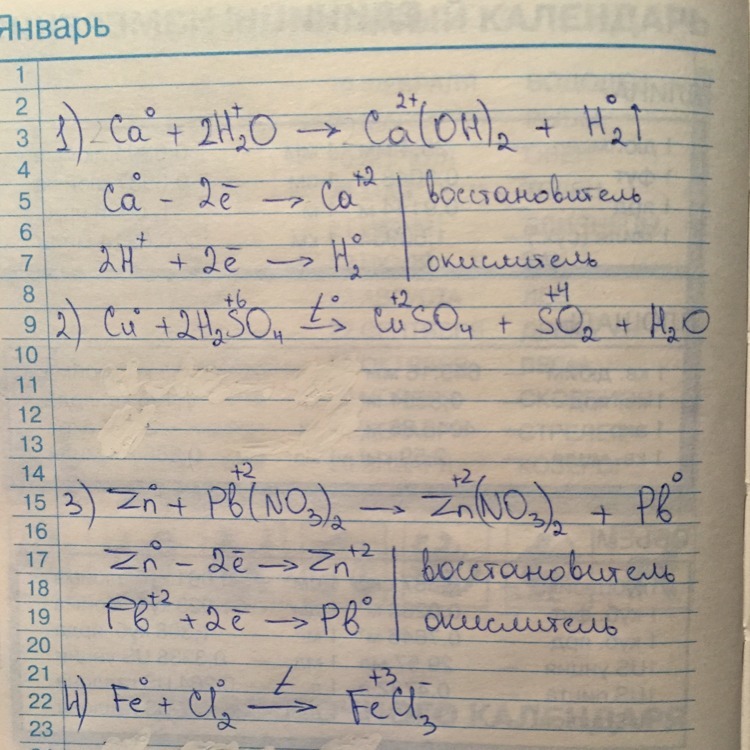 Январь
1
2
3 1) Ca⁰ + 2H₂⁺O → Ca²⁺(OH)₂ + H₂⁰↑
4
5 Ca⁰ – 2ē → Ca⁺² | восстановитель
6
7 2H⁺ + 2ē → H₂⁰ | окислитель
8
9 2) Cu⁰ + 2H₂S⁺⁶O₄ t°→ Cu⁺²SO₄ + S⁺⁴O₂ + H₂O
10
11
12
13
14
15 3) Zn⁰ + Pb⁺²(NO₃)₂ → Zn⁺²(NO₃)₂ + Pb⁰
16
17 Zn⁰ – 2ē → Zn⁺² | восстановитель
18
19 Pb⁺² + 2ē → Pb⁰ | окислитель
20
21
22 4) Fe⁰ + Cl₂⁰ t→ Fe⁺³Cl₃⁻
23